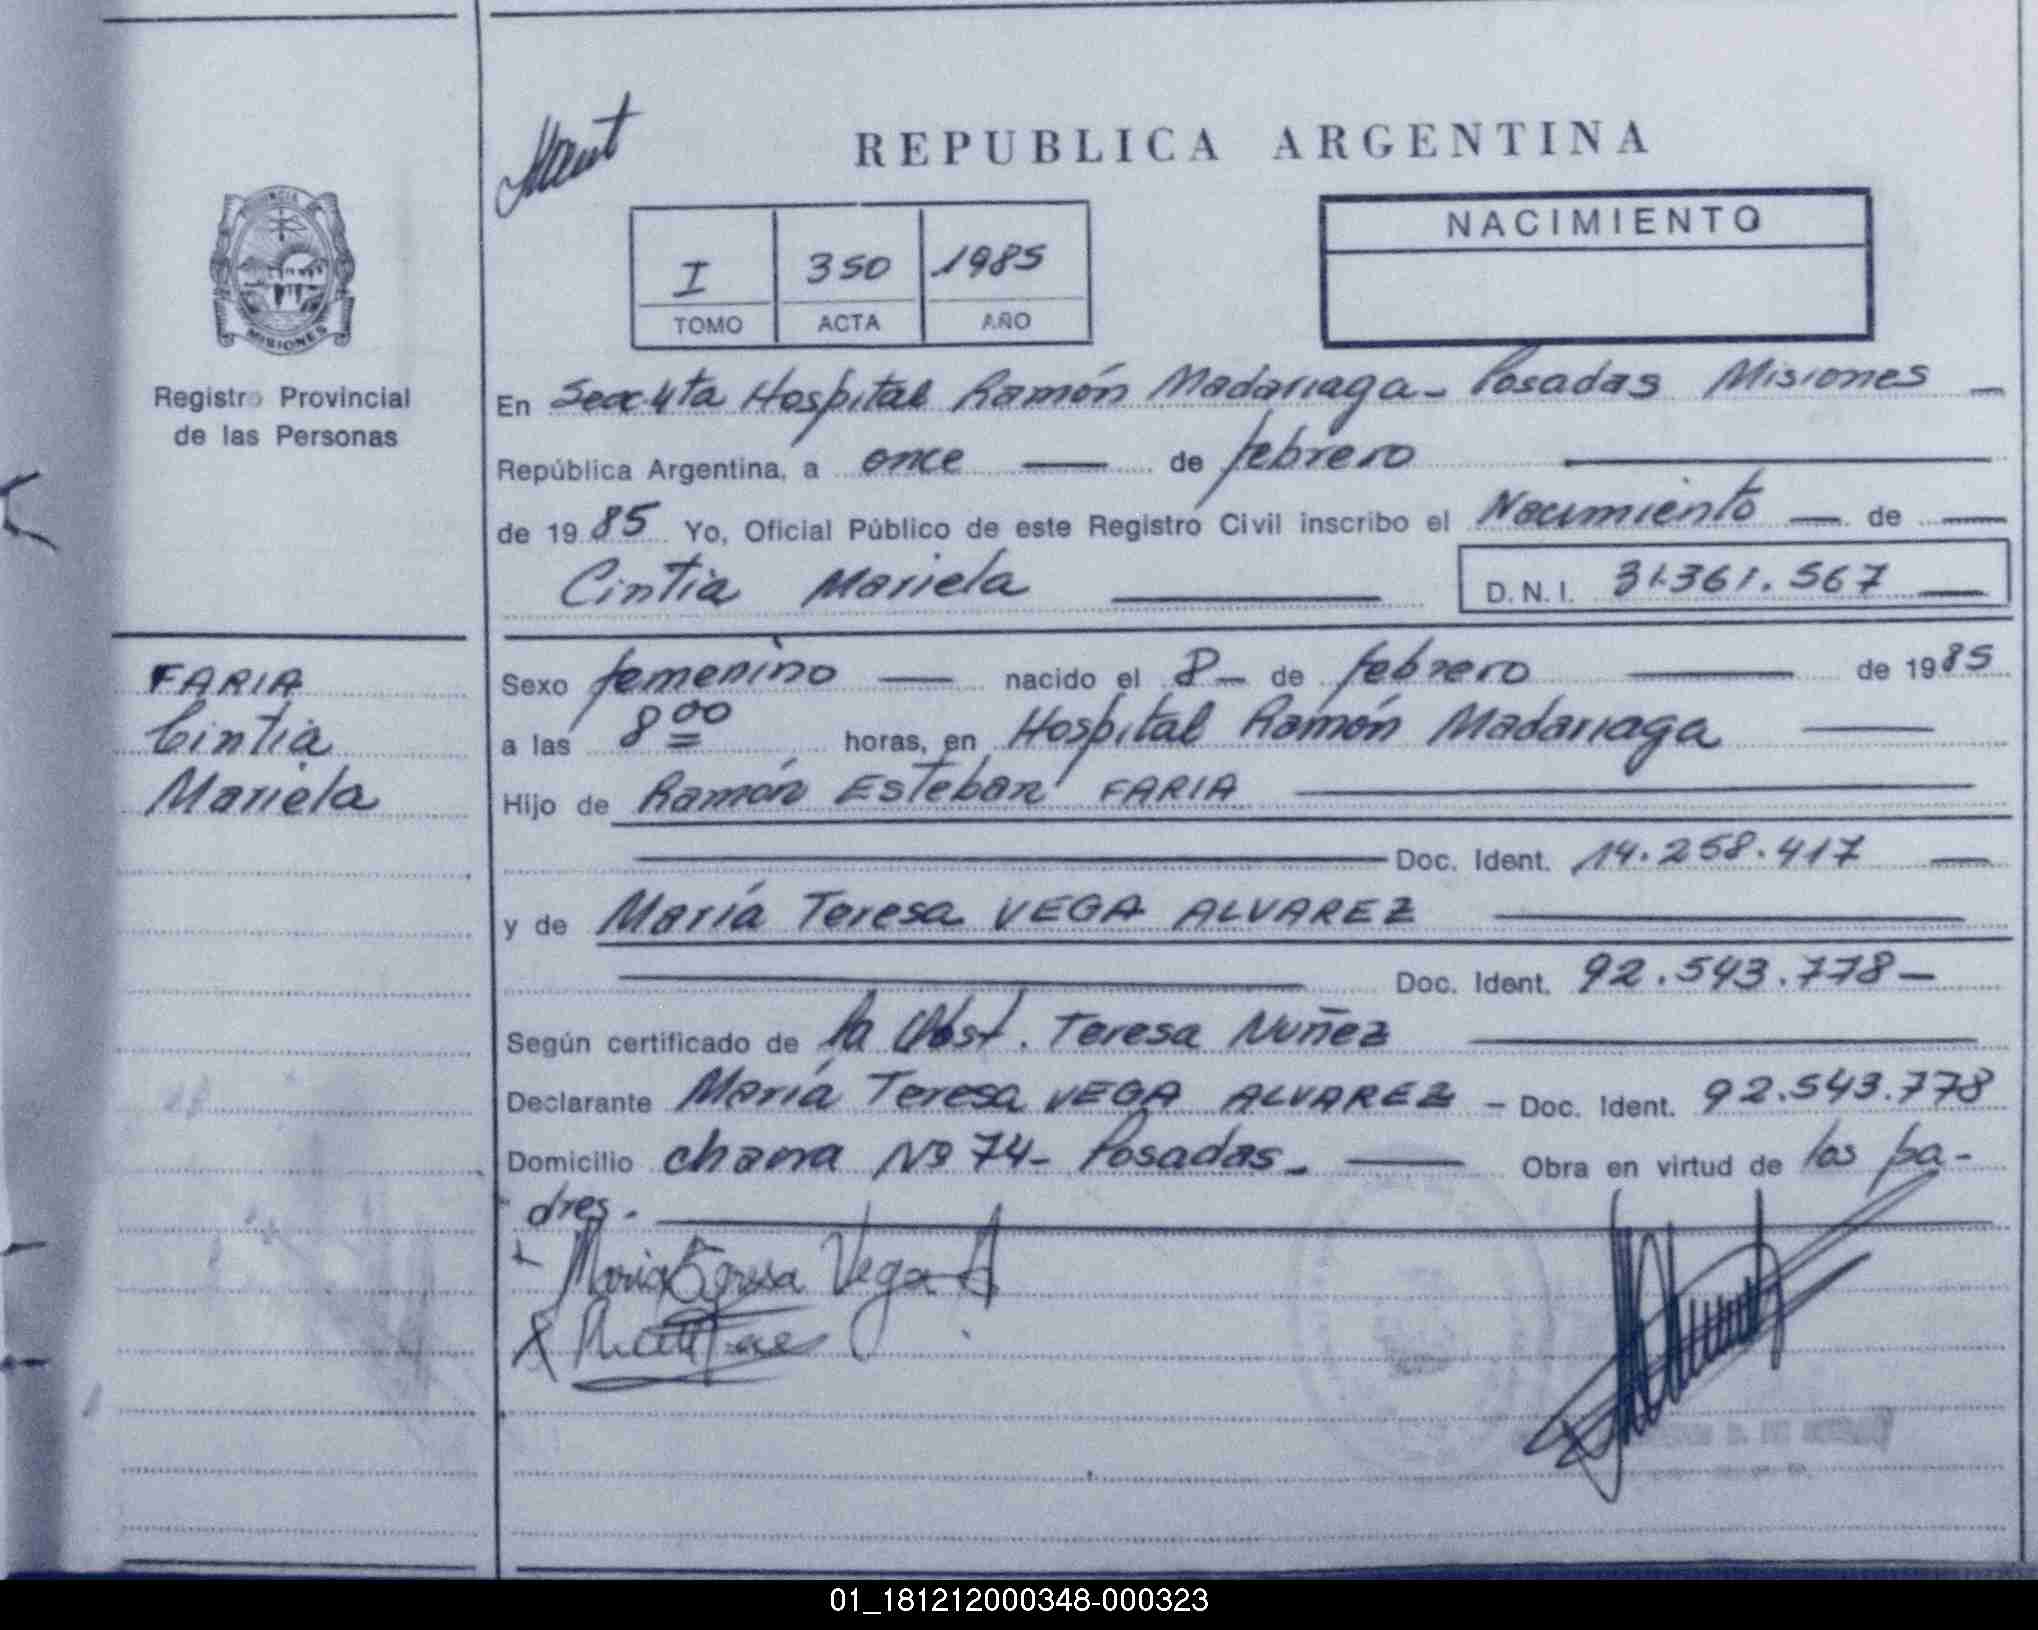 REPUBLICA ARGENTINA
PROVINCIA
MISIONES
Registro Provincial
de las Personas
NACIMIENTO
I 350 1985
TOMO ACTA AÑO
En Hospital Ramón Madariaga - Posadas Misiones —
República Argentina, a once — de febrero —
de 1985 Yo, Oficial Público de este Registro Civil inscribo el Nacimiento — de —
Cintia Mariela — D.N.I. 31.361.567 —
FARIA
Cintia
Mariela
Sexo femenino — nacido el 8 — de febrero — de 1985
a las 8 00 horas, en Hospital Ramón Madariaga —
Hijo de Ramón Esteban FARIA —
— Doc. Ident. 14.258.417 —
y de María Teresa VEGA ALVAREZ —
— Doc. Ident. 92.543.778 —
Según certificado de la Obst. Teresa Nuñez —
Declarante María Teresa VEGA ALVAREZ - Doc. Ident. 92.543.778
Domicilio Nº 74 - Posadas. — Obra en virtud de los pa-
dres. —
Maria Teresa Vega A
01_181212000348-000323